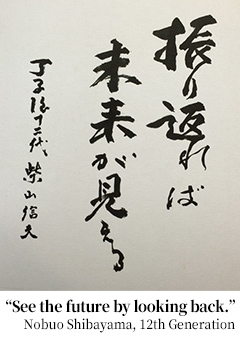 振り返れば
未来が見える
丁子屋十二代 柴山信夫
“See the future by looking back.”
Nobuo Shibayama, 12th Generation